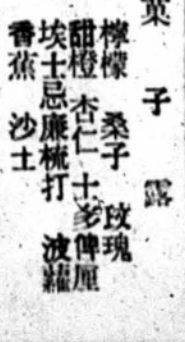 菓子露
檸檬 桑子 玫瑰
甜橙 杏仁 士多俾厘
埃士忌廉梳打 波蘿
香蕉 沙士